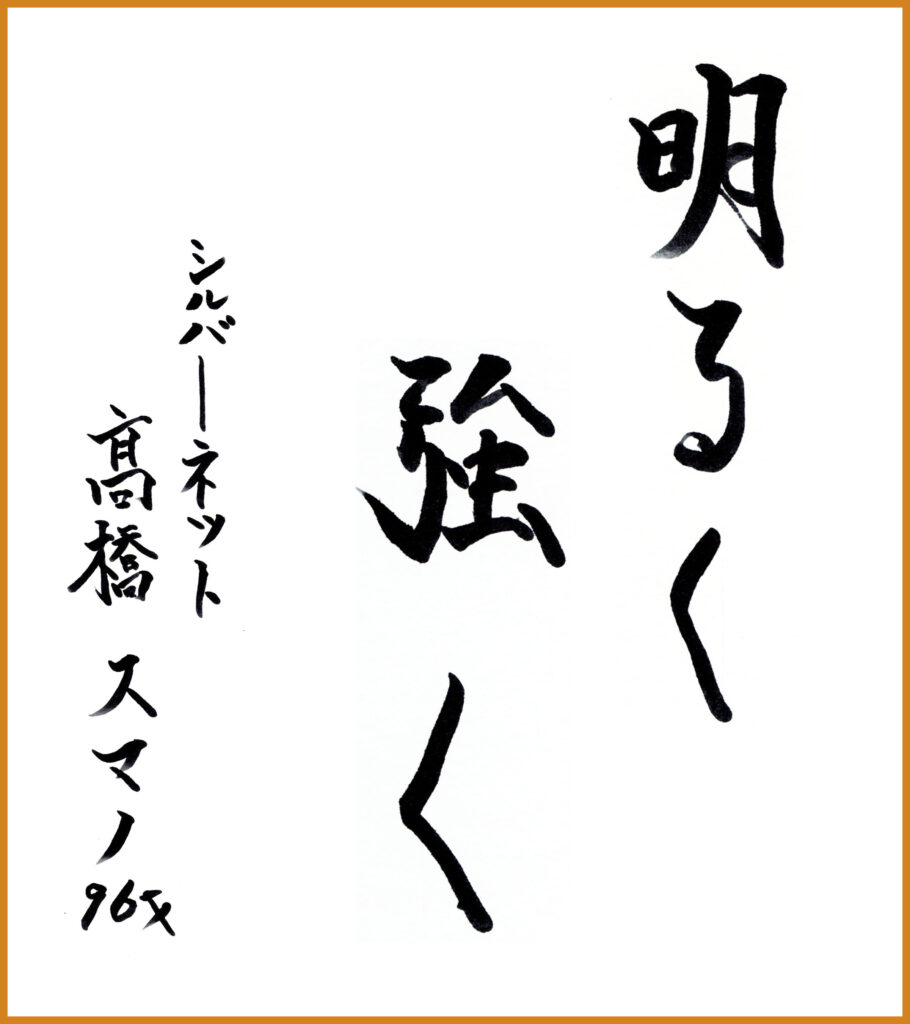 明るく
強く
シルバーネット
髙橋 スマノ 96才